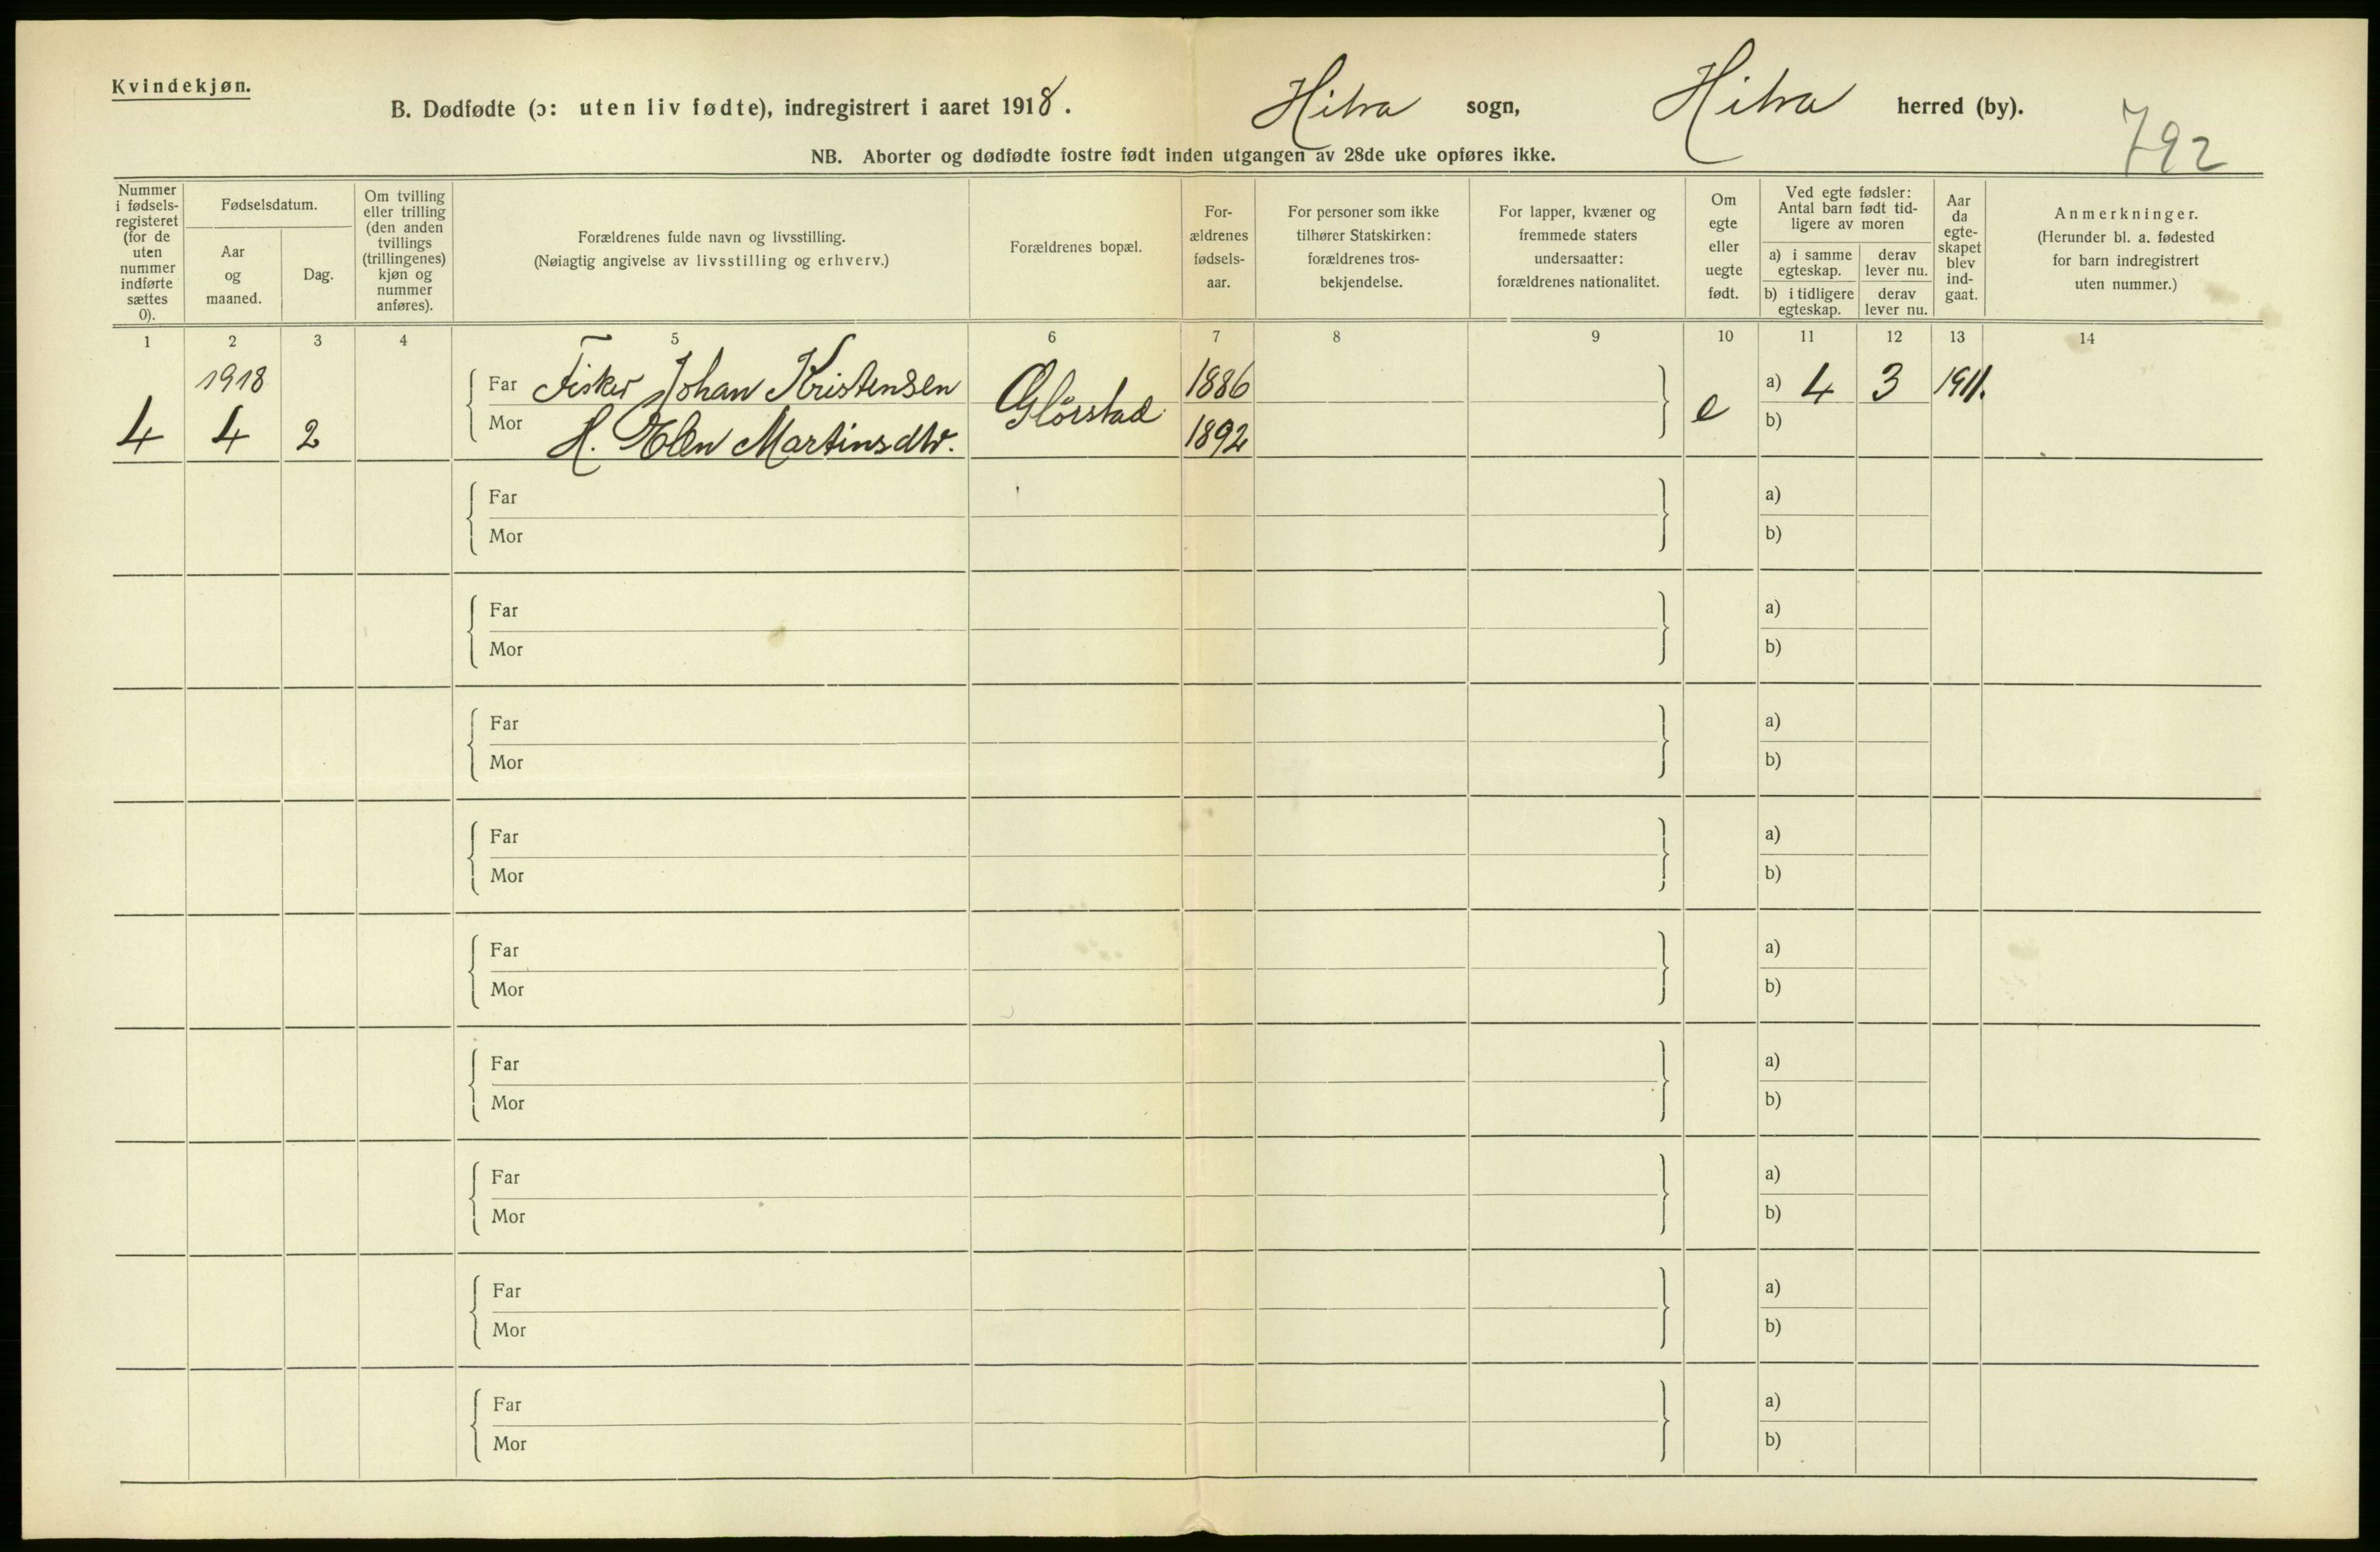 Kvindekjøn.
B. Dødfødte (ɔ: uten liv fødte), indregistrert i aaret 1918. Hitra sogn, Hitra herred (by).
792
NB. Aborter og dødfødte fostre født inden utgangen av 28de uke opføres ikke.
Nummer i fødsels-registeret (for de uten nummer indførte sættes 0).
Fødselsdatum.
Aar og maaned.
Dag.
Om tvilling eller trilling (den anden tvillings (trillingenes) kjøn og nummer anføres).
Forældrenes fulde navn og livsstilling.
(Nøiagtig angivelse av livsstilling og erhverv.)
Forældrenes bopæl.
For-ældrenes fødsels-aar.
For personer som ikke tilhører Statskirken: forældrenes tros-bekjendelse.
For lapper, kvæner og fremmede staters undersaatter: forældrenes nationalitet.
Om egte eller uegte født.
Ved egte fødsler: Antal barn født tid-ligere av moren
a) i samme egteskap.
derav lever nu.
b) i tidligere egteskap.
derav lever nu.
Aar da egte-skapet blev ind-gaat.
Anmerkninger.
(Herunder bl. a. fødested for barn indregistrert uten nummer.)
1 2 3 4 5 6 7 8 9 10 11 12 13 14
1918
Far Fisker Johan Kristensen 1886 a) 4 3 1911.
4 4 2 Mor H. Elen Martinsdtr. Glørstad 1892 e b)
Far a)
Mor b)
Far a)
Mor b)
Far a)
Mor b)
Far a)
Mor b)
Far a)
Mor b)
Far a)
Mor b)
Far a)
Mor b)
Far a)
Mor b)
Far a)
Mor b)